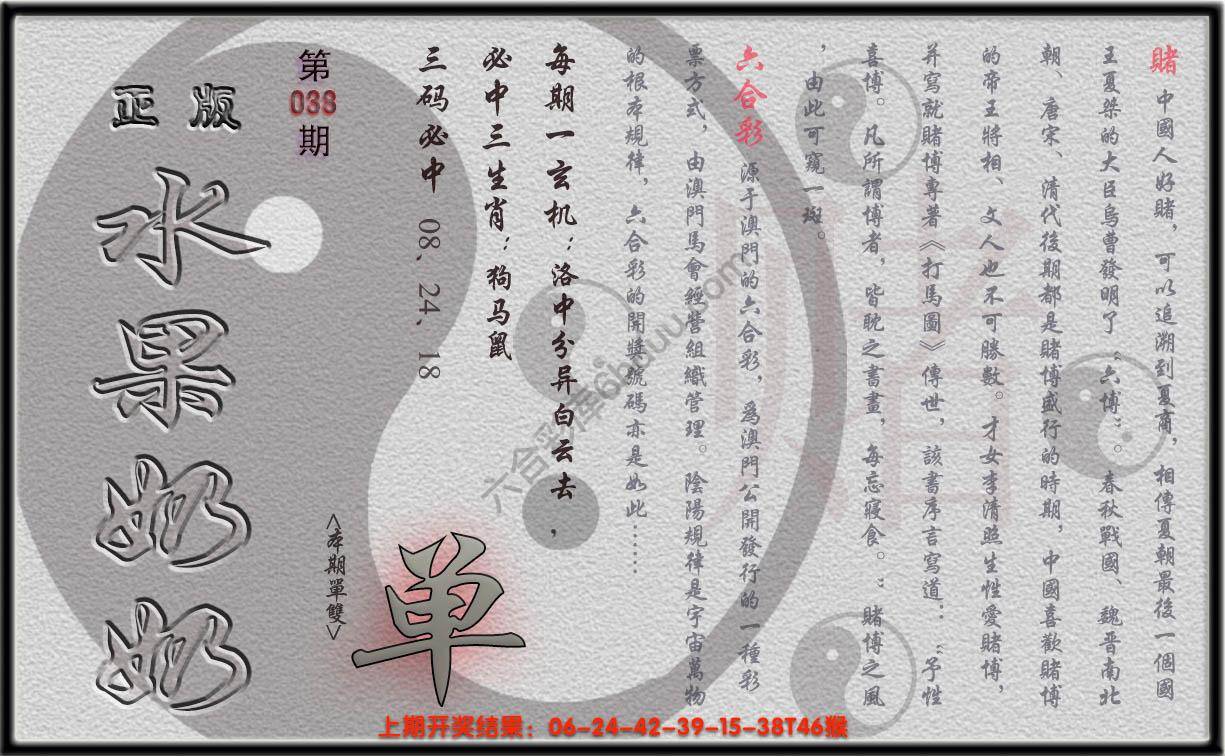 賭 中國人好賭，可以追溯到夏商，相傳夏朝最後一個國
王夏桀的大臣烏曹發明了“六博”。春秋戰國、魏晋南北
朝、唐宋、清代後期都是賭博盛行的時期，中國喜歡賭博
的帝王將相、文人也不可勝數。才女李清照生性愛賭博，
并寫就賭博專著《打馬圖》傳世，該書序言寫道：“予性
喜博。凡所謂博者，皆耽之晝畫，每忘寢食。”賭博之風
，由此可窺一斑。
六合彩 源于澳門的六合彩，爲澳門公開發行的一種彩
票方式，由澳門馬會經營組織管理。陰陽規律是宇宙萬物
的根本規律，六合彩的開獎號碼亦是如此……
每期一玄机：洛中分异白云去，
必中三生肖：狗马鼠
三码必中 08、24、18
第
038
期
<本期單雙>
单
正版
水果奶奶
賭
六合彩库6huuu.com
上期开奖结果：06-24-42-39-15-38T46猴